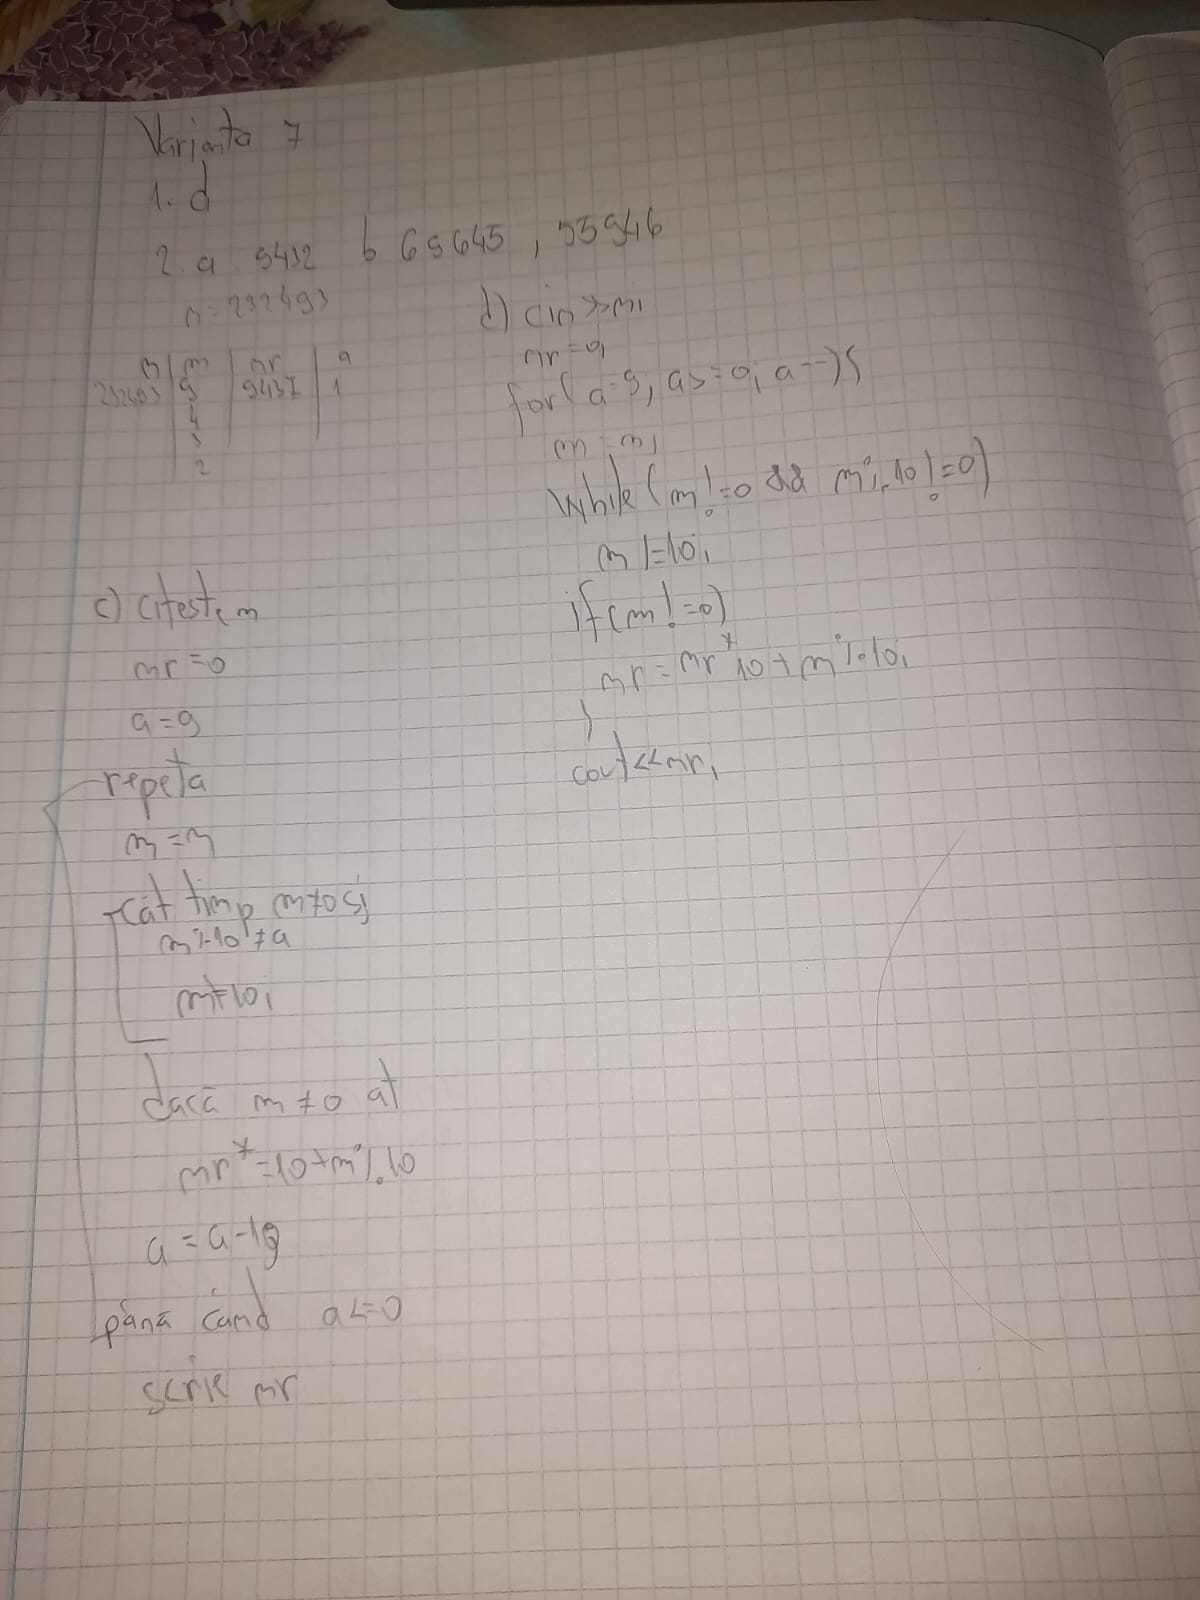 Varianta 7
1. d
2. a 9432 b 69645, 55946
n=292493
n | m | nr | a
292493 | 9 | 9437 | 1
4
3
2
c) citeste n
nr=0
a=9
repeta
m=n
cât timp m≠0 și
m%10≠a
m/=10;
dacă m≠0 at
nr*=10+m%10
a=a-1
până când a<=0
scrie nr
d) cin>>n;
nr=0;
for(a=9; a>=0; a--){
m=n;
while(m!=0 && m%10!=0)
m/=10;
if(m!=0)
nr=nr*10+m%10;
}
cout<<nr;